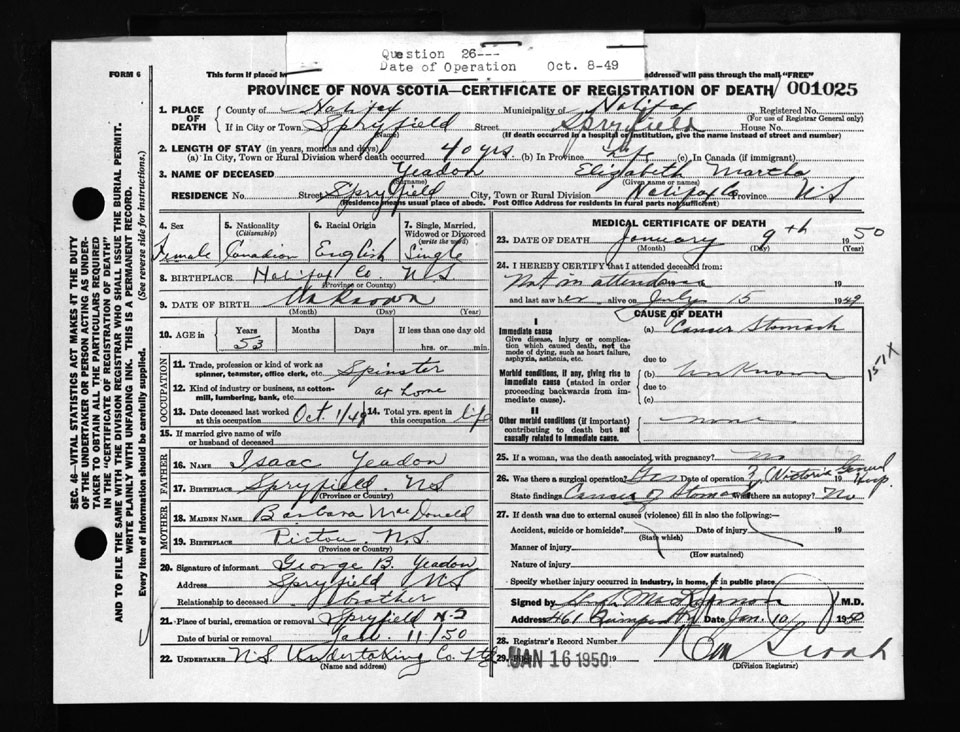 Question 26---
Date of Operation Oct. 8-49
FORM 6
This form if placed in
addressed will pass through the mail "FREE"
PROVINCE OF NOVA SCOTIA—CERTIFICATE OF REGISTRATION OF DEATH 001025
1. PLACE OF DEATH
County of Halifax Municipality of Halifax Registered No.
(For use of Registrar General only)
If in City or Town Spryfield Street Spryfield House No.
(Name) (If death occurred in a hospital or institution, give the name instead of street and number)
2. LENGTH OF STAY (in years, months and days)
(a) In City, Town or Rural Division where death occurred 40 yrs (b) In Province life (c) In Canada (if immigrant)
3. NAME OF DECEASED Yeadon Elizabeth Martha
(Surname) (Given name or names)
RESIDENCE No. Street Spryfield City, Town or Rural Division Halifax Co Province N S
(Residence means usual place of abode. Post Office Address for residents in rural parts not sufficient)
SEC. 46—VITAL STATISTICS ACT MAKES IT THE DUTY
OF THE UNDERTAKER OR PERSON ACTING AS UNDER-
TAKER TO OBTAIN ALL THE PARTICULARS REQUIRED
IN THE "CERTIFICATE OF REGISTRATION OF DEATH"
AND TO FILE THE SAME WITH THE DIVISION REGISTRAR WHO SHALL ISSUE THE BURIAL PERMIT.
WRITE PLAINLY WITH UNFADING INK. THIS IS A PERMANENT RECORD.
Every item of Information should be carefully supplied. (See reverse side for Instructions.)
4. Sex Female
5. Nationality (Citizenship) Canadian
6. Racial Origin English
7. Single, Married, Widowed or Divorced (write the word) Single
8. BIRTHPLACE Halifax Co. N S
(Province or Country)
9. DATE OF BIRTH Unknown
(Month) (Day) (Year)
10. AGE in Years 53 Months Days If less than one day old
hrs. or min.
OCCUPATION
11. Trade, profession or kind of work as spinner, teamster, office clerk, etc. Spinster
12. Kind of industry or business, as cotton-mill, lumbering, bank, etc. at home
13. Date deceased last worked at this occupation Oct 1/49 14. Total yrs. spent in this occupation life
15. If married give name of wife or husband of deceased
FATHER
16. NAME Isaac Yeadon
17. BIRTHPLACE Spryfield. N S
(Province or Country)
MOTHER
18. MAIDEN NAME Barbara MacDonald
19. BIRTHPLACE Pictou N.S.
(Province or Country)
20. Signature of informant George B. Yeadon
Address Spryfield N S
Relationship to deceased brother
21. Place of burial, cremation or removal Spryfield N-S
Date of burial or removal Jan. 11/50
22. UNDERTAKER N.S. Undertaking Co. Ltd
(Name and address)
MEDICAL CERTIFICATE OF DEATH
23. DATE OF DEATH January 9th 1950
(Month) (Day) (Year)
24. I HEREBY CERTIFY that I attended deceased from:
Not in attendance 19
and last saw her alive on July 15 1949
CAUSE OF DEATH
I
Immediate cause (a) Cancer Stomach
Give disease, injury or complication which caused death, not the mode of dying, such as heart failure, asphyxia, asthenia, etc.
due to
Morbid conditions, if any, giving rise to immediate cause (stated in order proceeding backwards from immediate cause).
(b) Unknown
due to
(c)
151X
II
Other morbid conditions (if important) contributing to death but not causally related to immediate cause. none
25. If a woman, was the death associated with pregnancy? No
26. Was there a surgical operation? Yes Date of operation Victoria General Hosp.
State findings Cancer of Stomach Was there an autopsy? No
27. If death was due to external causes (violence) fill in also the following:—
Accident, suicide or homicide? Date of injury 19
(State which)
Manner of injury
(How sustained)
Nature of injury
Specify whether injury occurred in industry, in home, or in public place
Signed by M.D.
Address 461 Date Jan. 10 1950
28. Registrar's Record Number
29. JAN 16 1950 19
(Division Registrar)